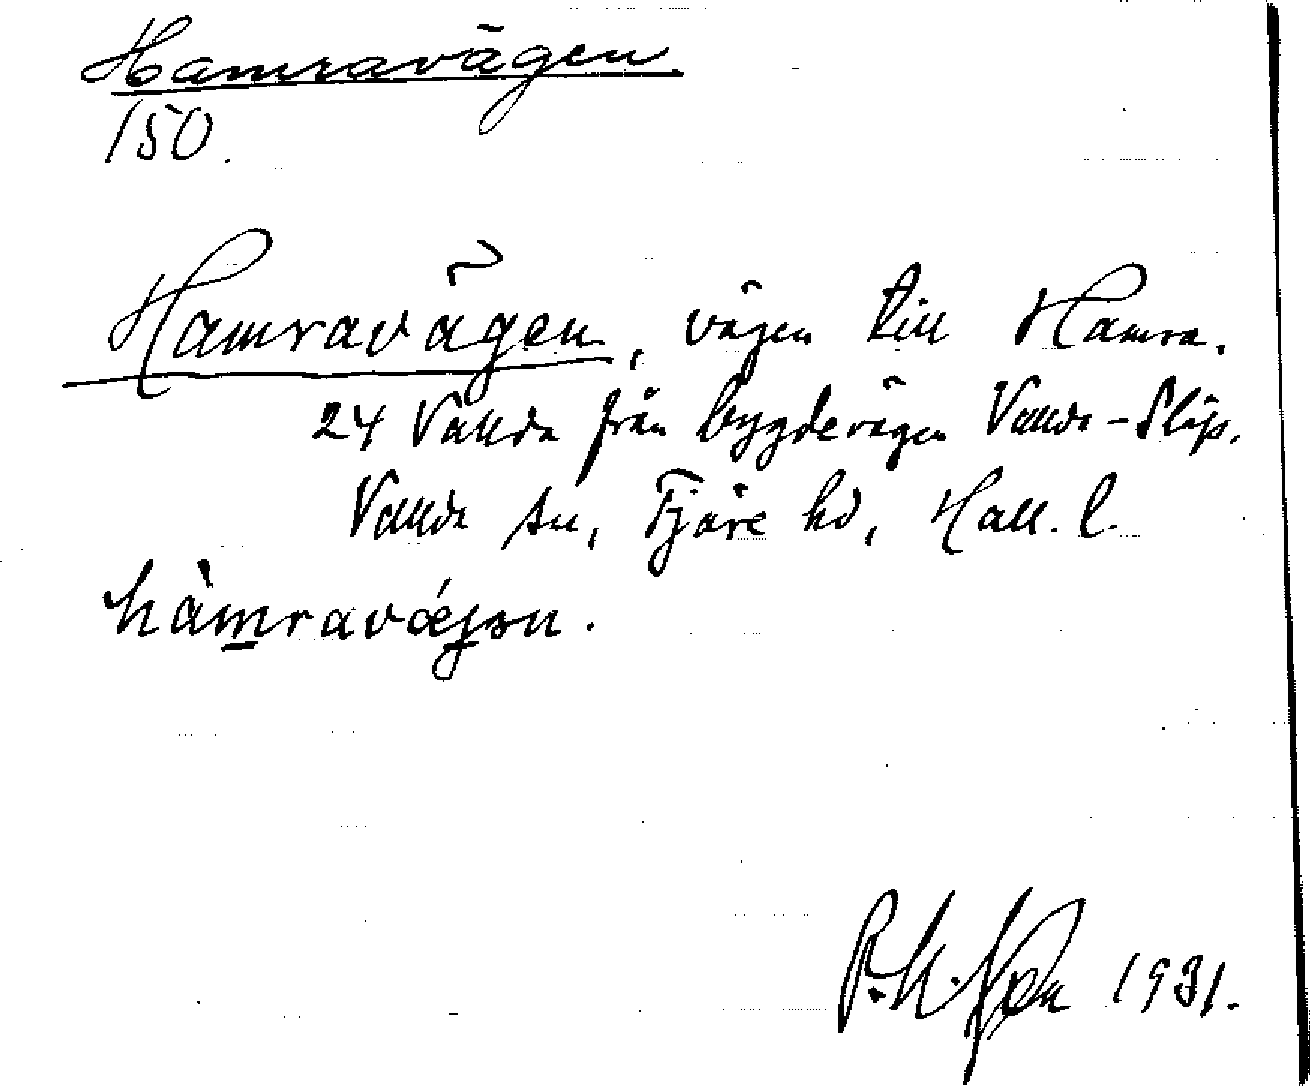 Hamravägen.
150.
Hamravägen, vägen till Hamra,
24 Vallda från bygdevägen Vallda-Släp.
Vallda sn, Fjäre hd, Hall. l.
hàmravǽgən.
1931.